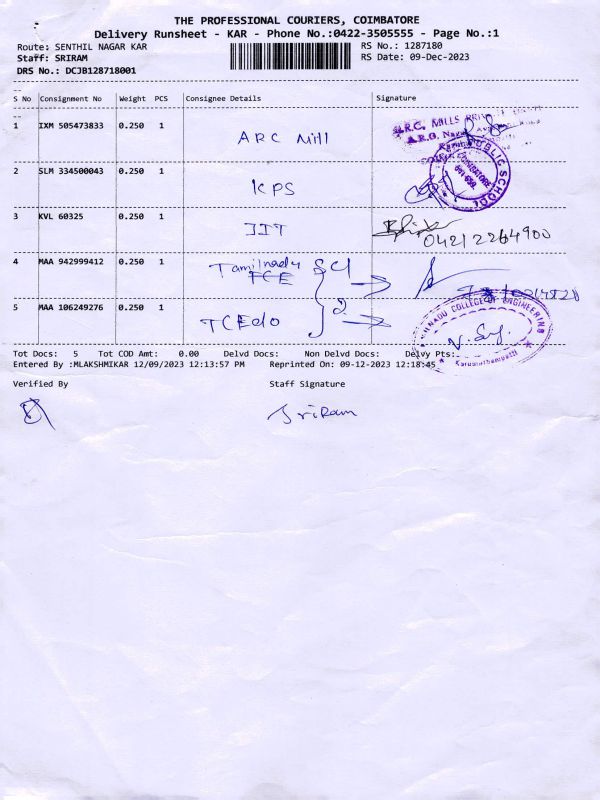 THE PROFESSIONAL COURIERS, COIMBATORE
Delivery Runsheet - KAR - Phone No.:0422-3505555 - Page No.:1
Route: SENTHIL NAGAR KAR RS No.: 1287180
Staff: SRIRAM RS Date: 09-Dec-2023
DRS No.: DCJB128718001
S No Consignment No Weight PCS Consignee Details Signature
1 IXM 505473833 0.250 1 ARC Mill
A.R.C. MILLS
2 SLM 334500043 0.250 1 KPS
PUBLIC SCHOOL
COIMBATORE
3 KVL 60325 0.250 1 IIT 0421 2264900
4 MAA 942999412 0.250 1 Tamilnadu
TCE
5 MAA 106249276 0.250 1 TCEdo 2
COLLEGE OF ENGINEERING
Karumathampatti
Tot Docs: 5 Tot COD Amt: 0.00 Delvd Docs: Non Delvd Docs: Delvy Pts:
Entered By :MLAKSHMIKAR 12/09/2023 12:13:57 PM Reprinted On: 09-12-2023 12:18:45
Verified By Staff Signature
SriRam